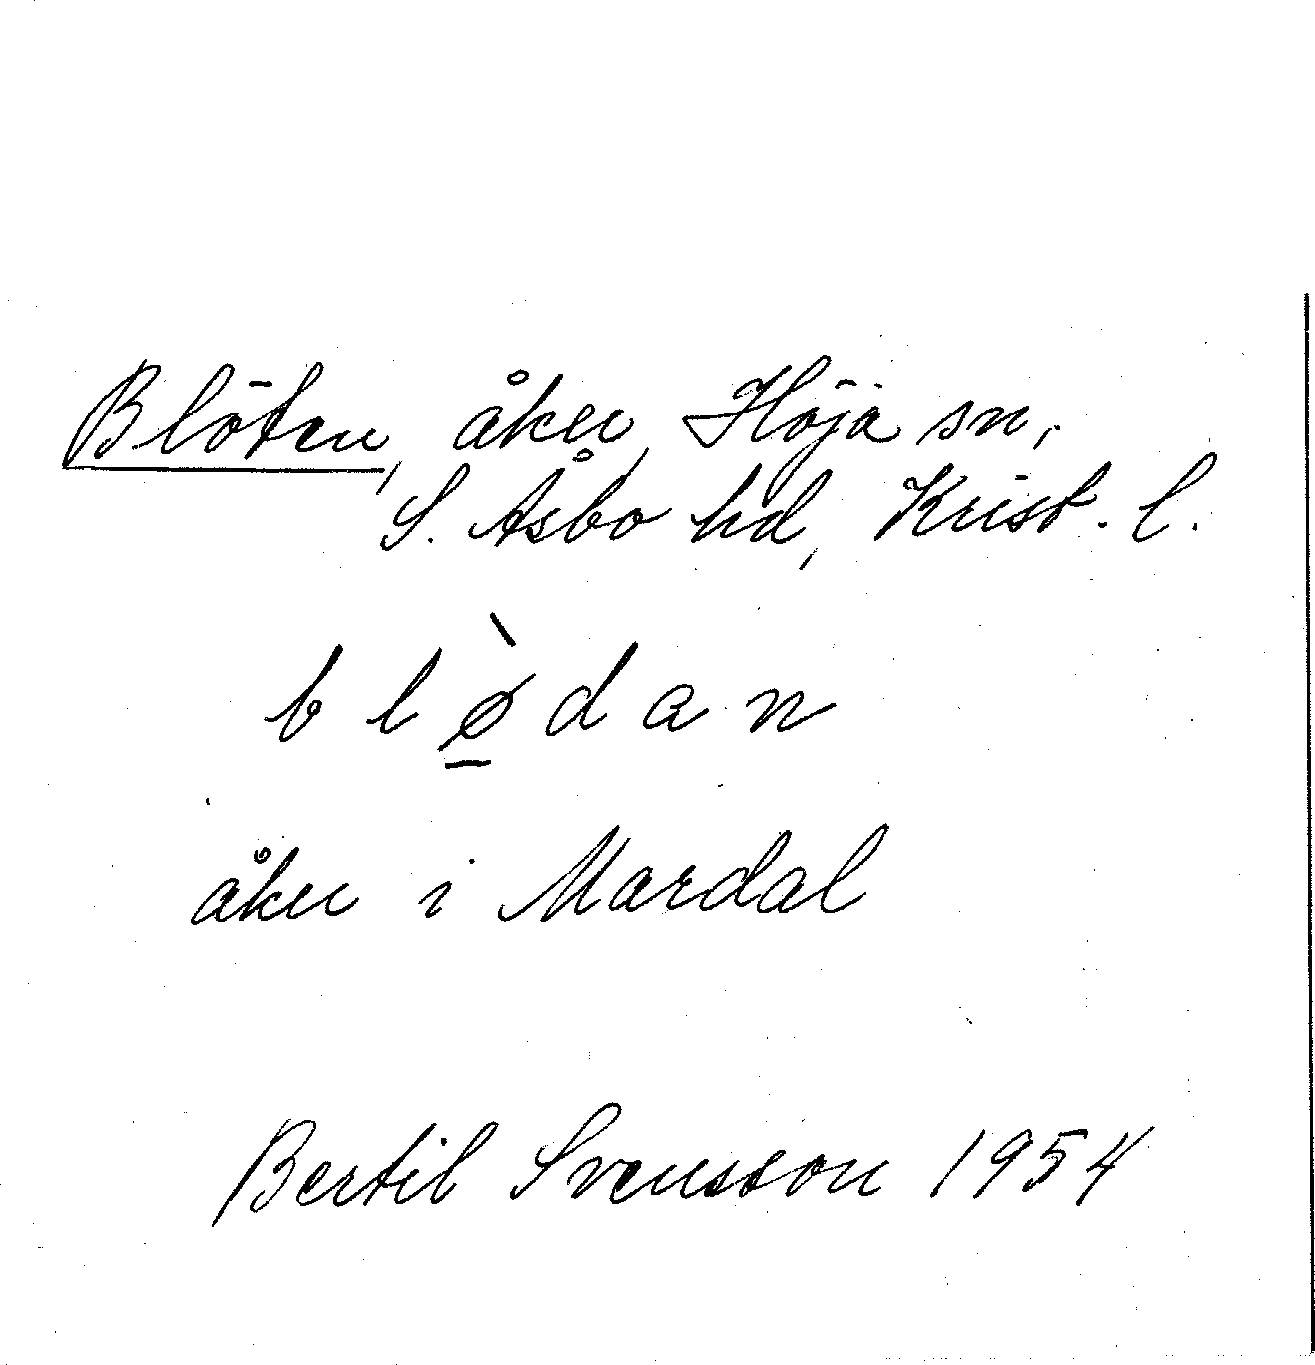 Blöten, åker, Höja sn,
S. Åsbo hd, Krist. l.
blø̠̀dan
åker i Mardal
Bertil Svensson 1954